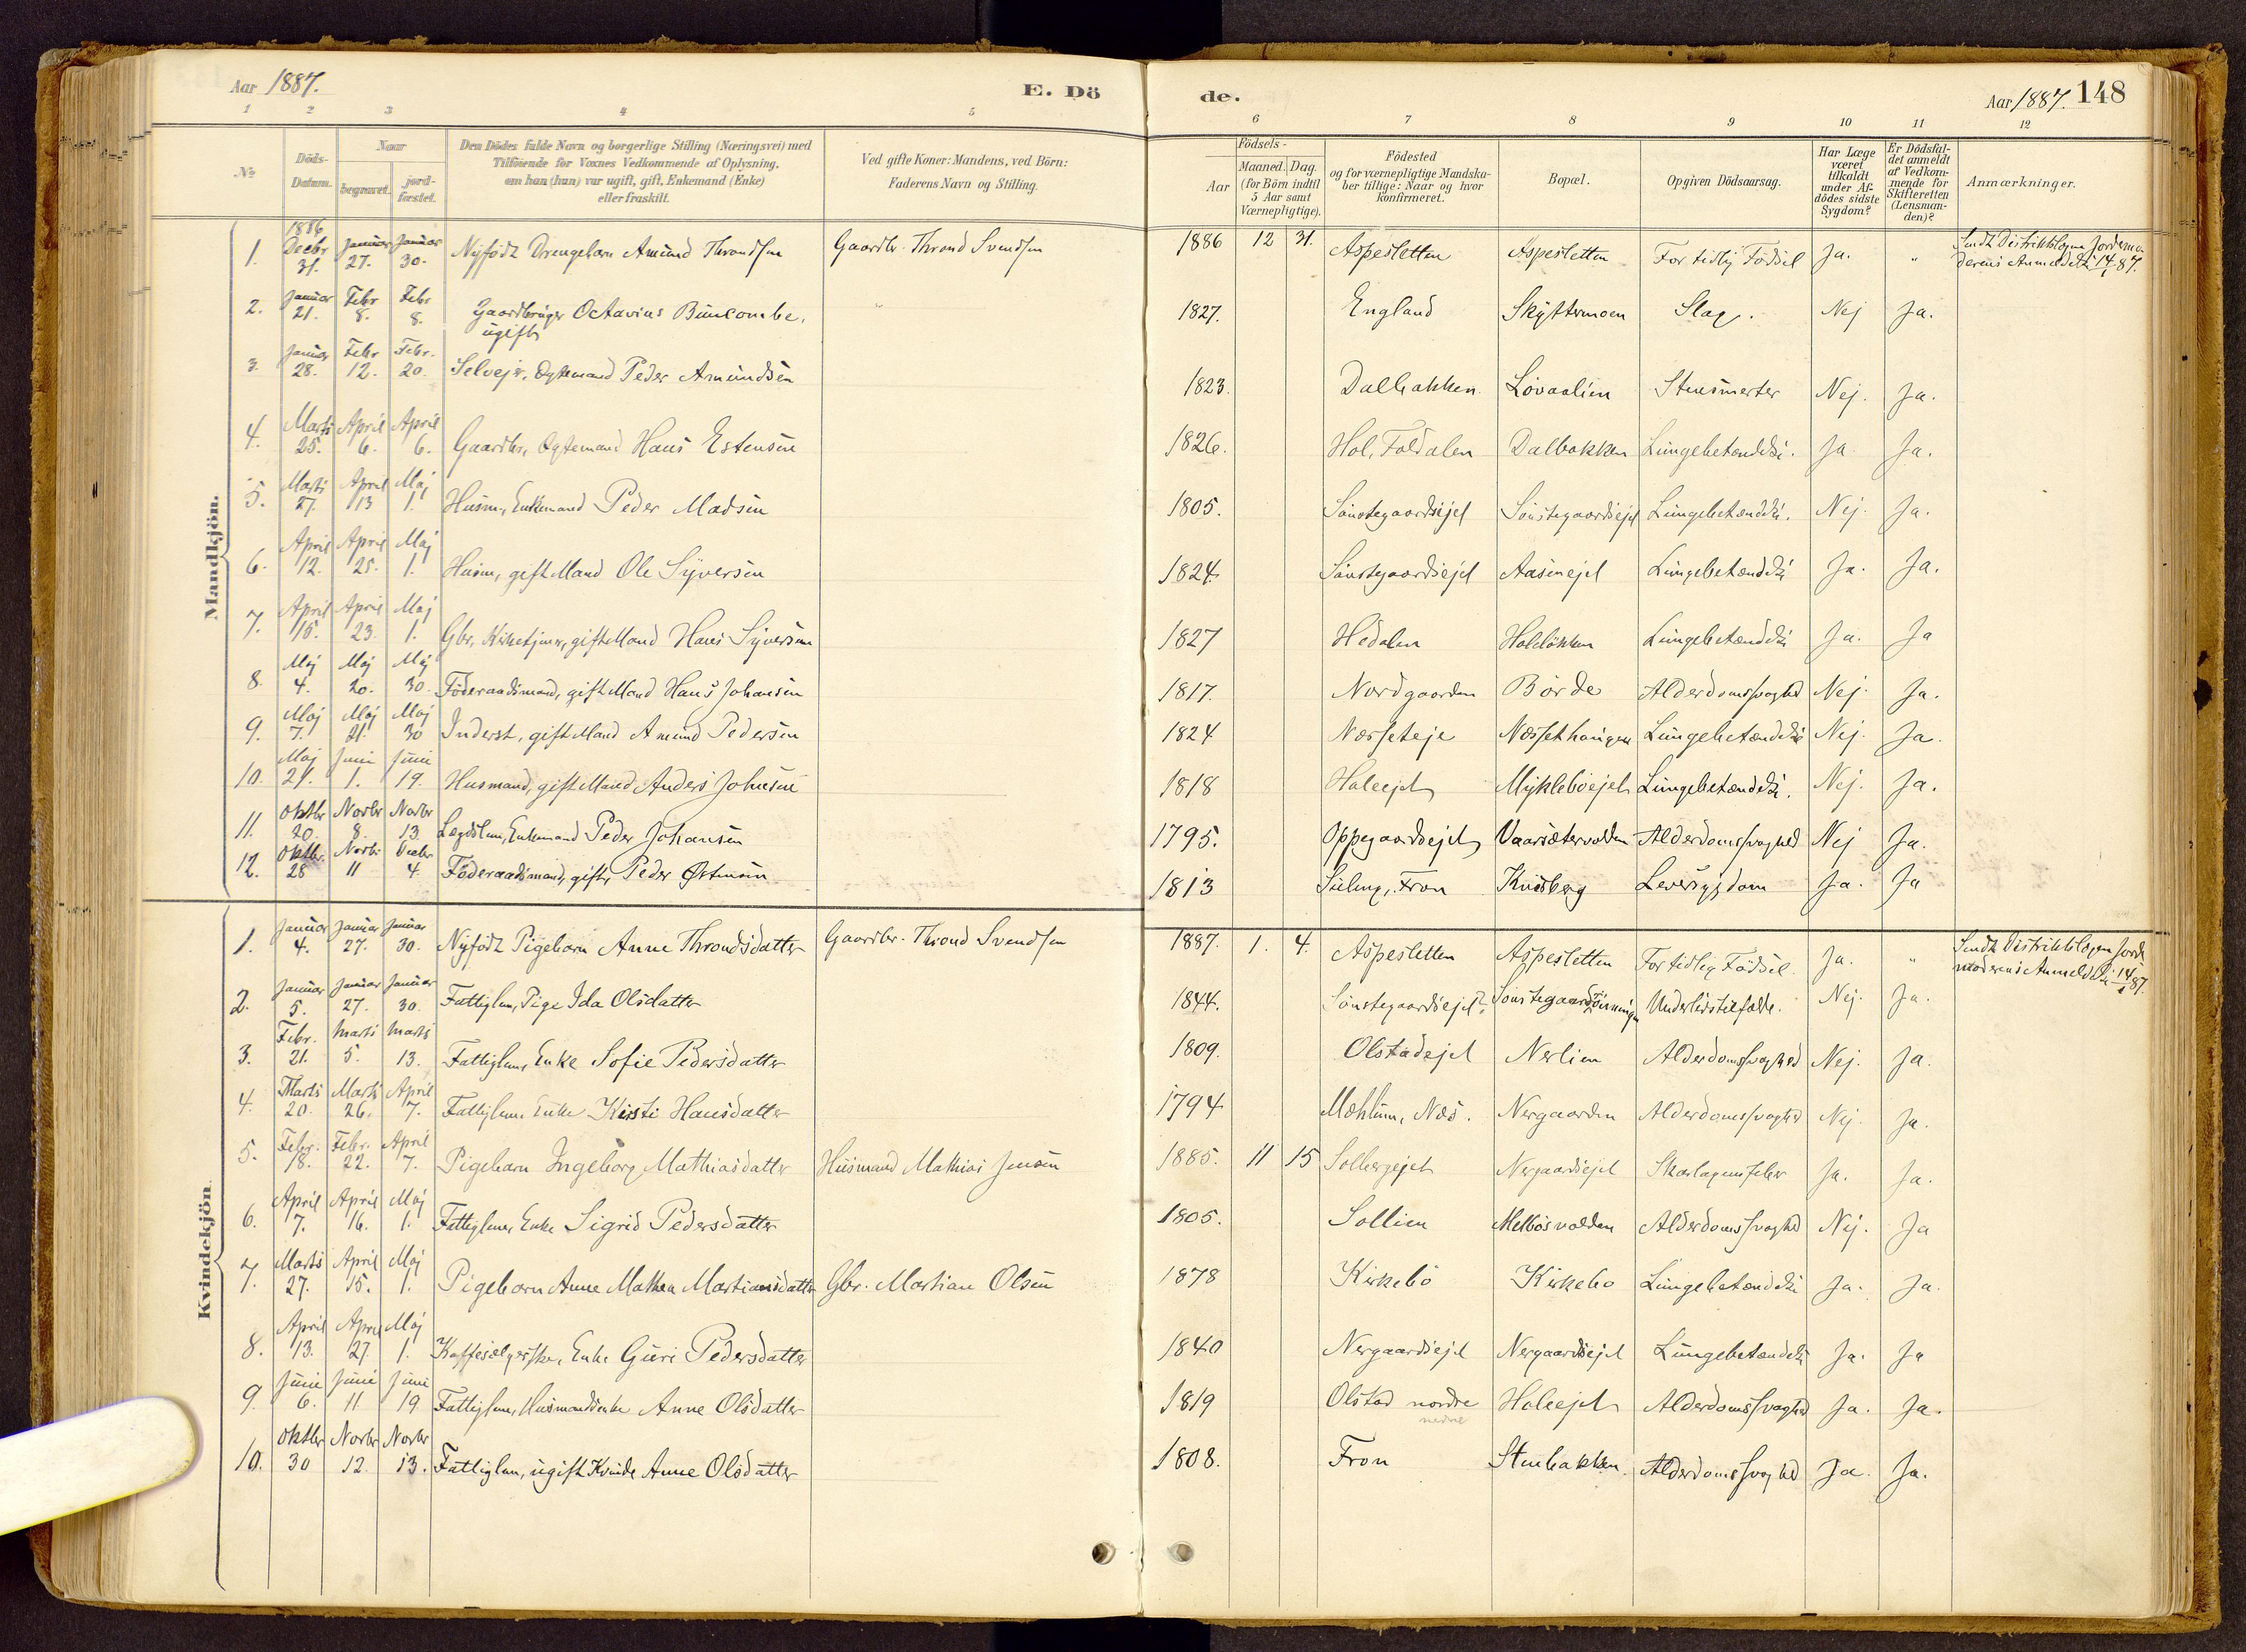 Aar 1887. E. Dö
1 2 3 4 5
No Döds-Datum. Naar begravet. jord-fæstet. Den Dödes fulde Navn og borgerlige Stilling (Næringsvei) med Tilföiende for Voxnes Vedkommende af Oplysning, om han (hun) var ugift, gift, Enkemand (Enke) eller fraskilt. Ved gifte Koner: Mandens, ved Börn: Faderens Navn og Stilling.
Mandkjön.
1. 1886 Decbr 31. Januar 27. Januar 30. Nyfödt Drengebarn Amund Throndsen Gaardbr. Thrond Svendsen
2. Januar 21. Febr 8. Febr 8. Gaardbruger Octavius Buncombe, ugift
3. Januar 28. Febr 12. Febr. 20. Selvejer, Ægtemand Peder Amundsen
4. Marts 25. April 6. April 6. Gaardbr, Ægtemand Hans Estensen
5. Marts 27. April 13 Maj 1. Husm, Enkemand Peder Madsen
6. April 12. April 25. Maj 1. Husm, gift Mand Ole Syversen
7. April 15. April 23. Maj 1. Gbr, Kirketjener, gift Mand Hans Syversen
8. Maj 4. Maj 20. Maj 30. Föderaadsmand, gift Mand Hans Johansen
9. Maj 7. Maj 21. Maj 30 Inderst, gift Mand Amund Pedersen
10. Maj 21. Juni 1. Juni 19. Husmand, gift Mand Anders Johnsen
11. Oktbr 20. Novbr 8. Novbr 13. Lægdslem, Enkemand Peder Johansen
12. Oktbr. 28 Novbr 11 Decbr 4. Föderaadsmand, gift, Peder Østensen
Kvindekjön.
1. Januar 4. Januar 27. Januar 30. Nyfödt Pigebarn Anne Throndsdatter Gaardbr. Thrond Svendsen
2. Januar 5. Januar 27. Januar 30. Fattiglem, Pige Ida Olsdatter
3. Febr. 21. Marts 5. Marts 13. Fattiglem, Enke Sofie Pedersdatter
4. Marts 20. Marts 26. April 7. Fattiglem Enke Kirsti Hansdatter
5. Febr. 18. Febr. 22. April 7. Pigebarn Ingeborg Mathiasdatter Husmand Mathias Jensen
6. April 7. April 16. Maj 1. Fattiglem, Enke Sigrid Pedersdatter
7. Marts 27. April 15. Maj 1. Pigebarn Anne Mathea Martiansdatter Gbr. Martian Olsen
8. April 13. April 27 Maj 1. Kaffesælgerske, Enke Guri Pedersdatter
9. Juni 6. Juni 11 Juni 19 Fattiglem, Husmandsenke Anne Olsdatter
10. Oktbr 30 Novbr 12. Novbr 13. Fattiglem, ugift Kvinde Anne Olsdatter
de. Aar 1887. 148
6 7 8 9 10 11 12
Födsels- Aar Maaned. Dag. (for Börn indtil 5 Aar samt Værnepligtige). Födested og for værnepligtige Mandskaber tillige: Naar og hvor konfirmeret. Bopæl. Opgiven Dödsaarsag. Har Læge været tilkaldt under Afdödes sidste Sygdom? Er Dödsfaldet anmeldt af Vedkommende for Skifteretten (Lensmanden)? Anmærkninger.
1886 12 31. Aspesletten Aspesletten For tidlig Födsel Ja. " Sendt Distriktslægen Jordemoderens Anmeldelse 14/1 87.
1827. England Skyttermoen Slag. Nej Ja.
1823. Dalbakken Lovaalien Stensmerter Nej. Ja.
1826. Hol, Foldalen Dalbakken Lungebetændelse. Ja. Ja.
1805. Sönstegaardsejet Sönstegaardsejet Lungebetændelse. Nej. Ja.
1824. Sönstegaardsejet Aasenejet Lungebetændelse Ja. Ja.
1827 Hedalen Holelökken Lungebetændelse Ja. Ja
1817. Nordgaarden Börde Alderdomssvaghed Nej. Ja.
1824 Næsseteje Næssethaugen Lungebetændelse Nej. Ja.
1818 Holeejet Mykleboejet Lungebetændelse. Nej. Ja.
1795. Oppegaardsejet Vaarsætervolden Alderdomssvaghed Nej Ja.
1813 Fron Kvisberg Leversygdom Ja. Ja
1887. 1. 4. Aspesletten Aspesletten For tidlig Födsel. Ja. " Sendt Distriktslægen Jordemoderens Anmeldelse 14/1 87.
1844. Sönstegaardsejet Underlivstilfælde. Nej. Ja.
1809. Olstadejet Nerlien Alderdomssvaghed Nej. Ja.
1794 Mæhlum, Næs. Nergaarden Alderdomssvaghed Nej. Ja.
1885. 11 15 Solbergejet Nergaardsejet Skarlagensfeber Ja. Ja.
1805. Sollien Melbösvolden Alderdomssvaghed Nej. Ja
1878 Kirkebö Kirkebo Lungebetændelse Ja. Ja.
1840 Nergaardsejet Nergaardsejet Lungebetændelse Ja. Ja
1819 Olstad nordre nedre Holeejet Alderdomssvaghed Ja. Ja.
1808. Fron Stenbakken Alderdomssvaghed Ja. Ja.